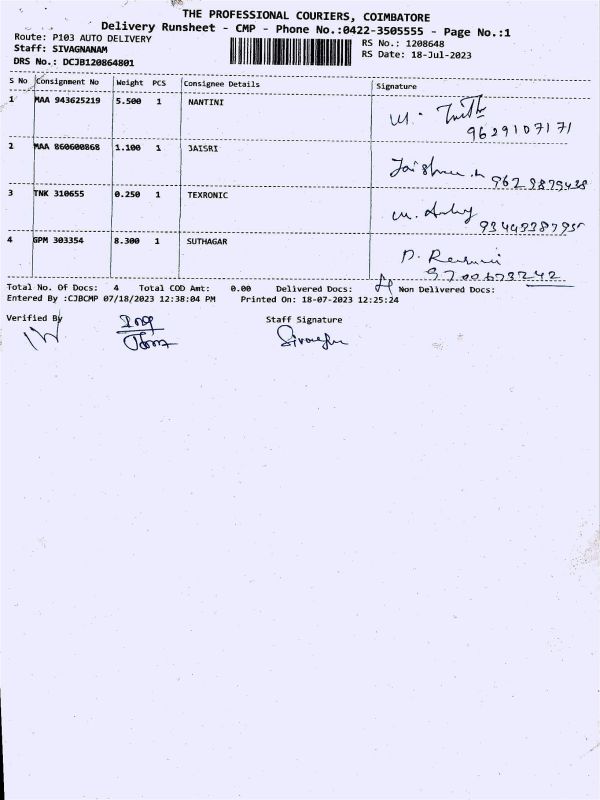 THE PROFESSIONAL COURIERS, COIMBATORE
Delivery Runsheet - CMP - Phone No.:0422-3505555 - Page No.:1
Route: P103 AUTO DELIVERY
RS No.: 1208648
Staff: SIVAGNANAM
RS Date: 18-Jul-2023
DRS No.: DCJB120864801
S No Consignment No Weight PCS Consignee Details Signature
1 MAA 943625219 5.500 1 NANTINI
9629107171
2 MAA 860600868 1.100 1 JAISRI
3 TNK 310655 0.250 1 TEXRONIC
4 GPM 303354 8.300 1 SUTHAGAR
Total No. Of Docs: 4 Total COD Amt: 0.00 Delivered Docs: Non Delivered Docs:
Entered By :CJBCMP 07/18/2023 12:38:04 PM Printed On: 18-07-2023 12:25:24
Verified By Staff Signature